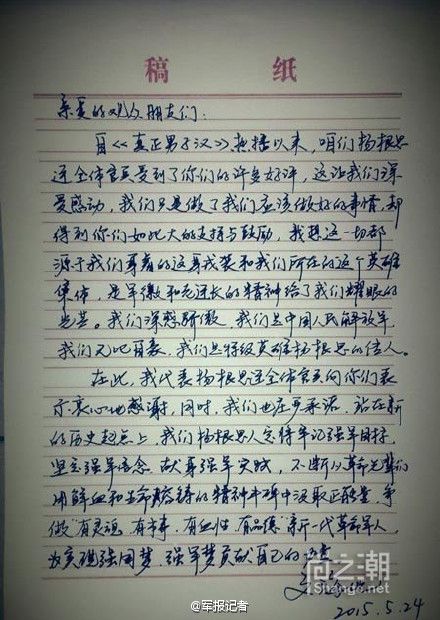 稿 纸
亲爱的观众朋友们:
自《真正男子汉》热播以来,咱们杨根思
连全体官兵受到了你们的许多好评,这让我们深
受感动,我们只是做了我们应该做好的事情,却
得到你们如此大的支持与鼓励,我想这一切都
源于我们穿着的这身戎装和我们所在的这个英雄
集体,是军徽和老连长的精神给了我们耀眼的
光芒。我们深感骄傲,我们是中国人民解放军,
我们又以自豪,我们是特级英雄杨根思的传人。
在此,我代表杨根思连全体官兵向你们表
示衷心地感谢,同时,我们也庄严承诺,站在新
的历史起点上,我们杨根思人定将牢记强军目标,
坚定强军信念,献身强军实践,不断从革命先辈们
用鲜血和生命熔铸的精神丰碑中汲取正能量,争
做"有灵魂、有本事、有血性、有品德"新一代革命军人,
为实现强国梦、强军梦贡献自己的力量
2015.5.24
向之潮
@军报记者